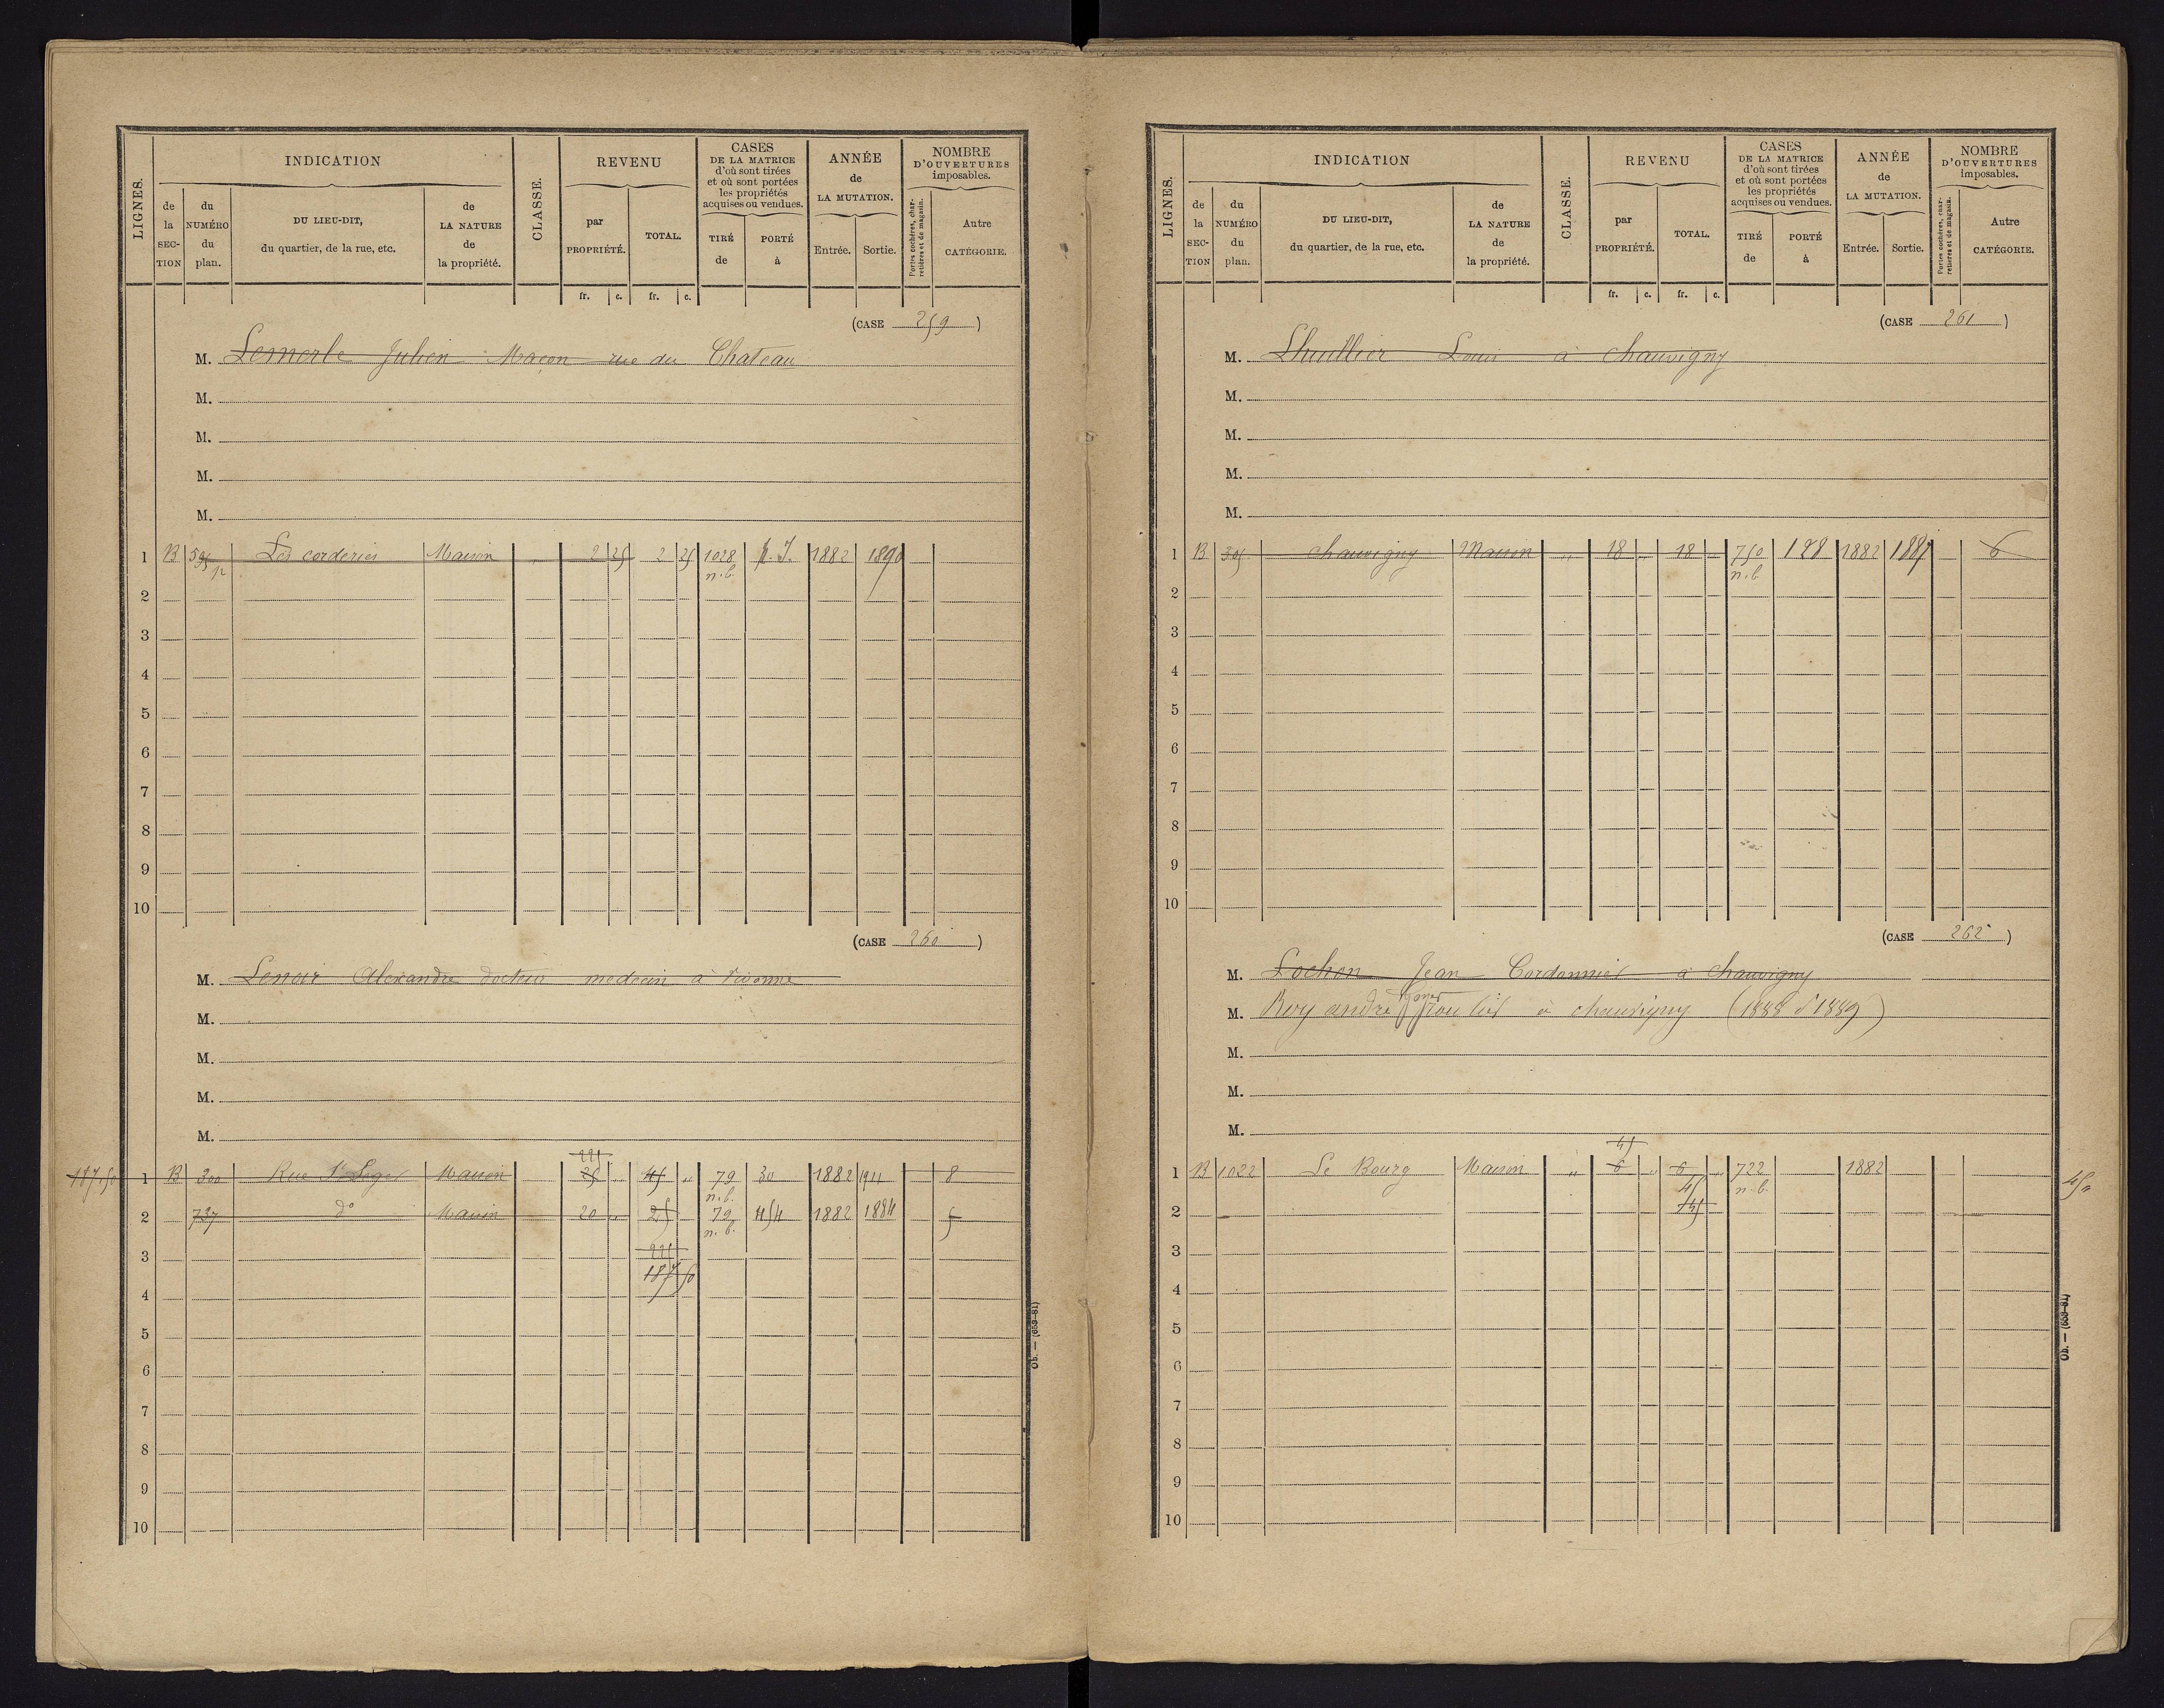 LIGNES.
INDICATION
de la SEC-TION
du NUMÉRO du plan.
DU LIEU-DIT, du quartier, de la rue, etc.
de LA NATURE de la propriété.
CLASSE.
REVENU
par PROPRIÉTÉ.
TOTAL.
CASES DE LA MATRICE d'où sont tirées et où sont portées les propriétés acquises ou vendues.
TIRÉ de
PORTÉ à
ANNÉE de LA MUTATION.
Entrée. Sortie.
NOMBRE D'OUVERTURES imposables.
Portes cochères, char-retières et de magasin.
Autre CATÉGORIE.
fr. c. fr. c.
(CASE 259)
M. Lemerle Julien Maçon rue du Chateau
M.
M.
M.
M.
1 B 595 p Les corderies Maison " 2 25 2 25 1028 n.b. 1882 1890
2
3
4
5
6
7
8
9
10
(CASE 260)
M. Lenoir Alexandre docteur medecin à Vivonne
M.
M.
M.
M.
225
187.50 1 B 300 Rue St Leger Maison 25 " 45 " 79 n.b. 30 1882 1911 8
2 737 do Maison 20 " 25 79 n.b. 454 1882 1884 5
3 225
187 50
4
5
6
7
8
9
10
Ob. — (653-81)
LIGNES.
INDICATION
de la SEC-TION
du NUMÉRO du plan.
DU LIEU-DIT, du quartier, de la rue, etc.
de LA NATURE de la propriété.
CLASSE.
REVENU
par PROPRIÉTÉ.
TOTAL.
CASES DE LA MATRICE d'où sont tirées et où sont portées les propriétés acquises ou vendues.
TIRÉ de
PORTÉ à
ANNÉE de LA MUTATION.
Entrée. Sortie.
NOMBRE D'OUVERTURES imposables.
Portes cochères, char-retières et de magasin.
Autre CATÉGORIE.
fr. c. fr. c.
(CASE 261)
M. Lhuillier Louis à Chauvigny
M.
M.
M.
M.
1 B 305 Chauvigny Maison " 18 " 18 750 n.b. 128 1882 6
2
3
4
5
6
7
8
9
10
(CASE 262)
M. Lochon Jean Cordonnier à Chauvigny
M. Roy andré à chauvigny (1888 d 1889)
M.
M.
M.
45
1 B 1022 Le Bourg Maison " 6 " 6 " 722 n.b. 1882
45
2 45
3
4
5
6
7
8
9
10
Ob. — (653-81)